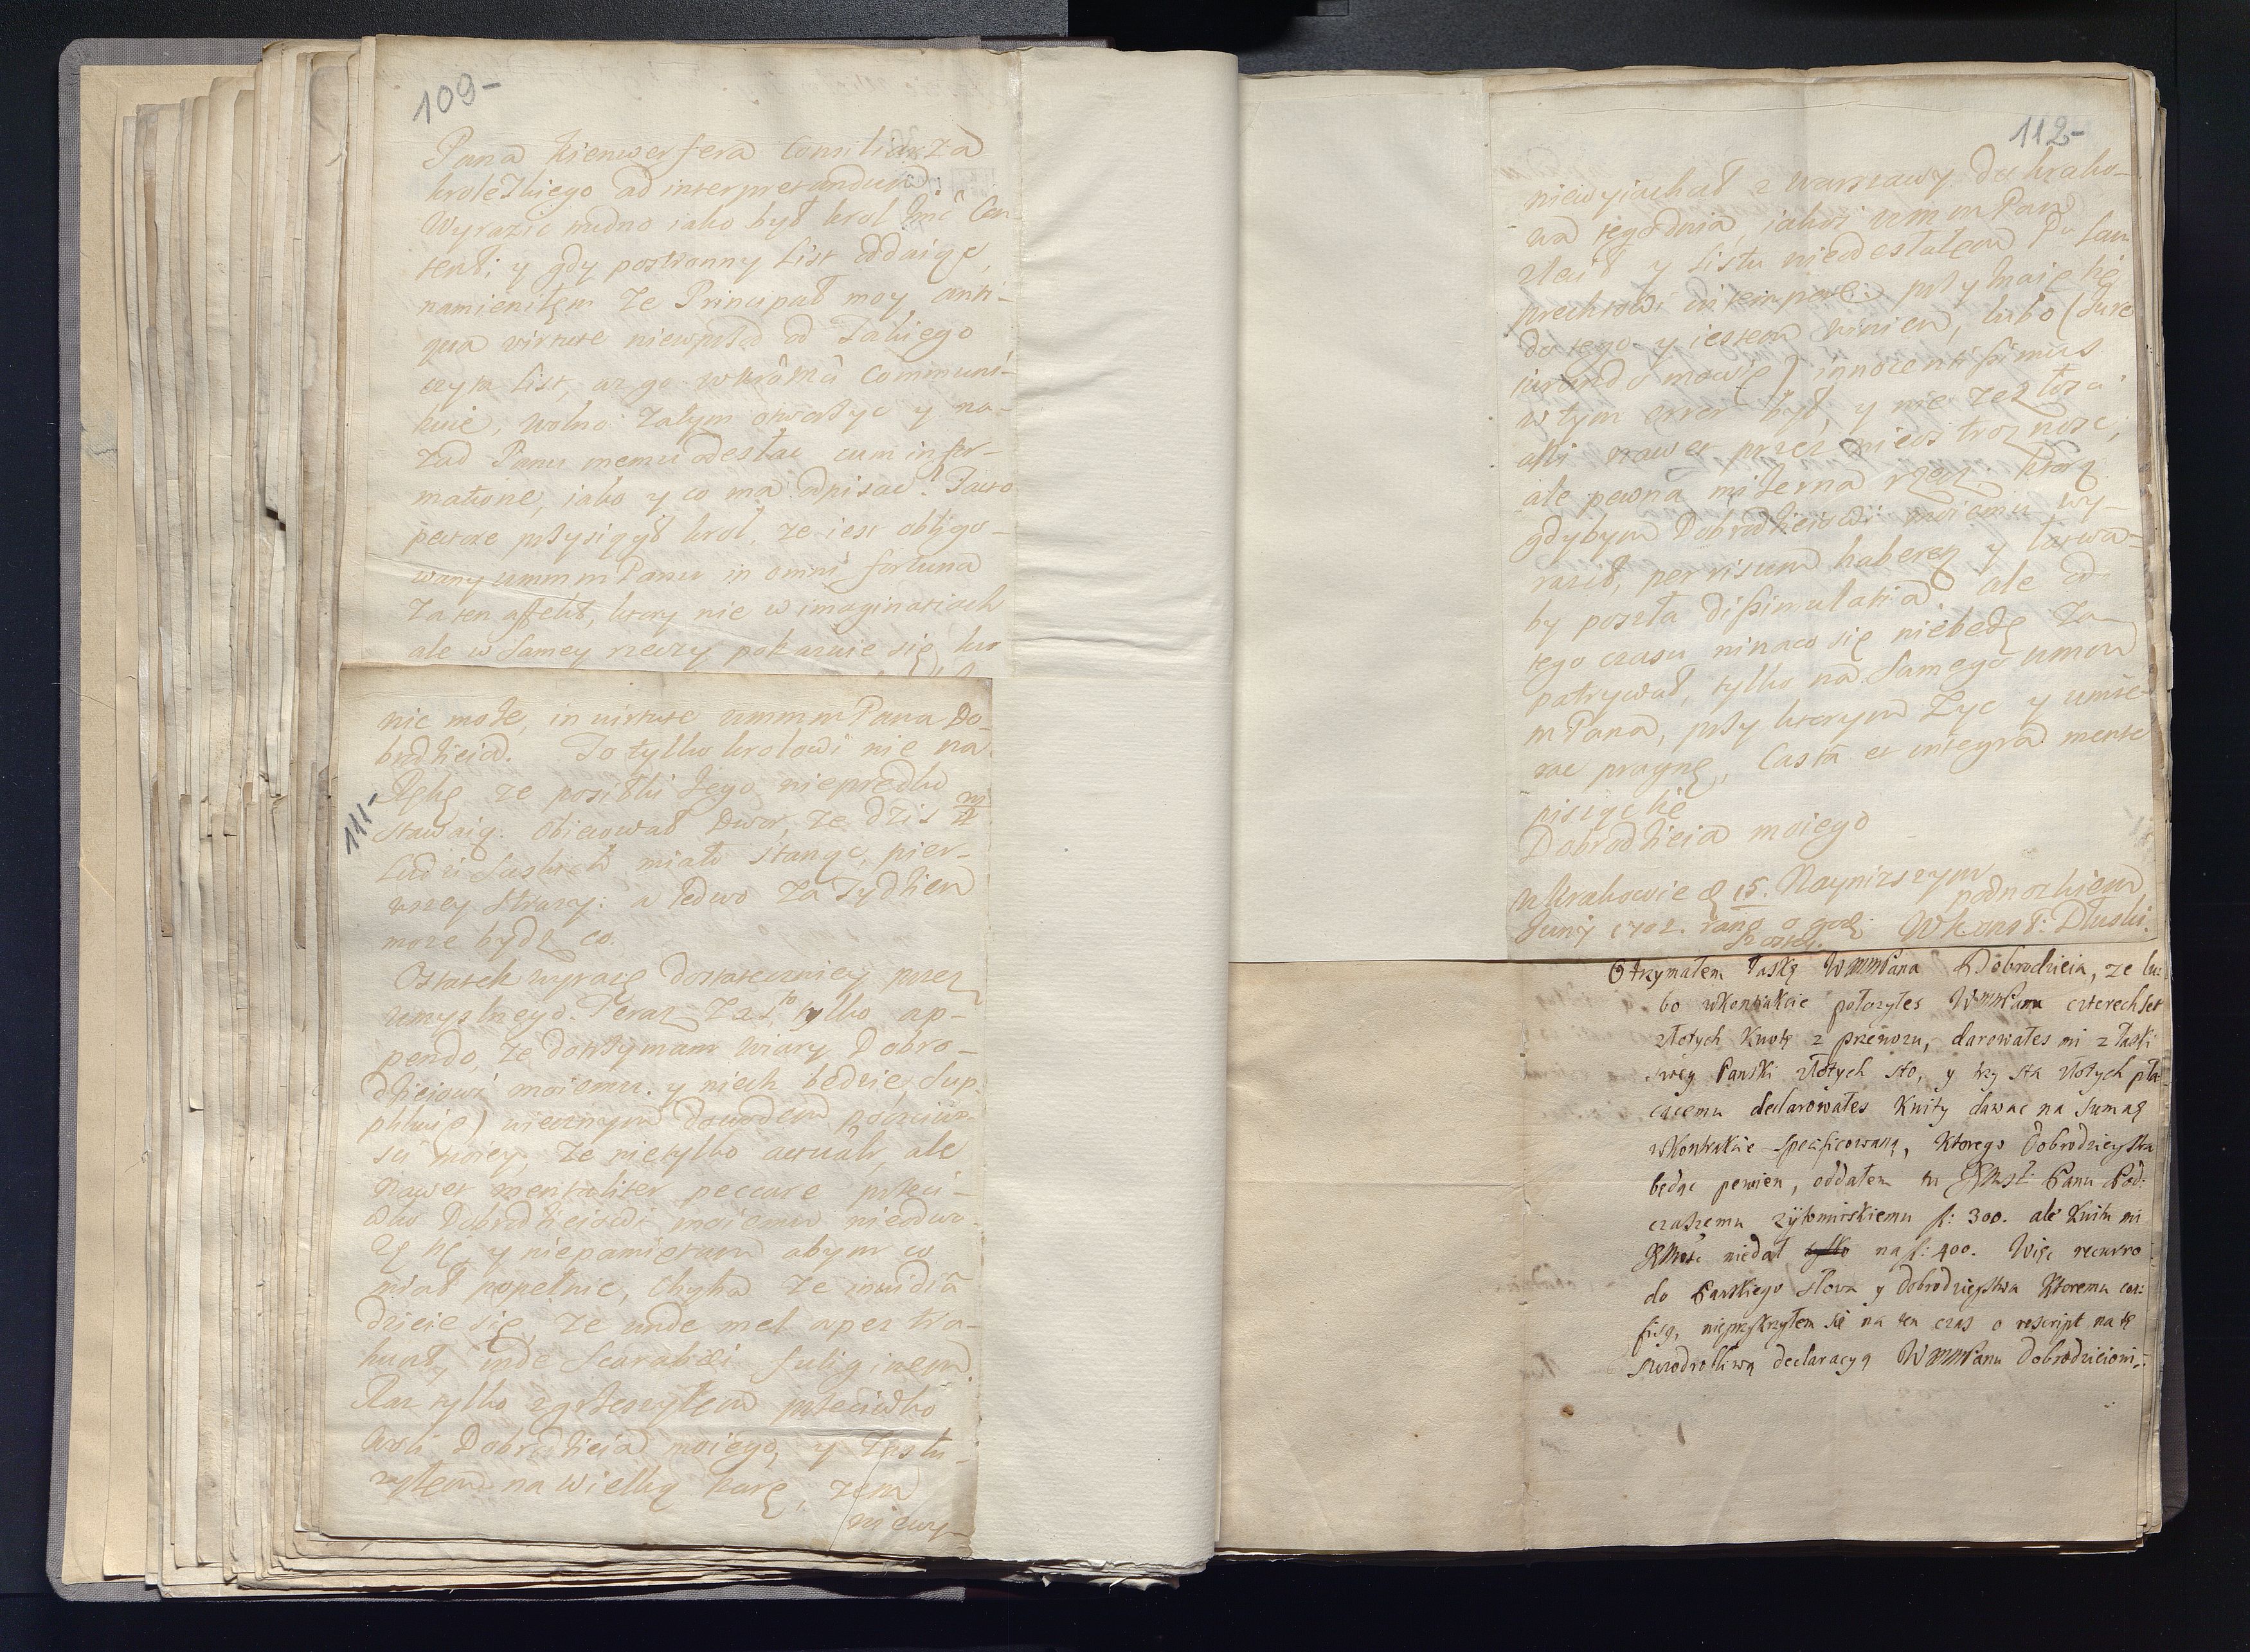 109-
Pana Kienwerfera Consiliarza
krolezkiego ad interpretandum.
Wyrazic trudno iako był krol Jmc Con-
tent; y gdy postronny List oddaiąc,
namieniłęm Ze Principał moy anti-
qua virtute niewprzod od Takiego
czyta List, az go wprzod Communi-
kuie, wolno Zatym otworzyc y na-
zad Panu memu odesłac cum infor-
matione, iako y co ma odpisac? Facto
pectore przysiągł krol, ze iest obligo-
wany ummm Panu in omni fortuna
Za ten affekt, ktory nie w imaginatiach
ale w Samey rzeczy pokazuie się, kto
nic może, in virtute ummm Pana Do-
brodzieia. To tylko krolowi nie na
Rękę ze posiłki Jego nieprędko
111-
stawaią. Obiecował Dwor, Ze dzis
Ludzi Saskich miało stanąc, pier-
wszey strazy: a ledwo Za Tydzien
moze bydz co.
Ostatek wyrazę dostateczniey przez
umyslnego. Teraz Zas to tylko ap-
pendo, ze dotrzymam Wiary Dobro-
dzieiowi moiemu. y niech będzie (sup-
plikuię) wiecznym dowodem poczciwo-
sci moiey, Ze nietylko actualr, ale
nawet mentaliter peccare przeci-
wko Dobrodzieiowi moiemu nieodwa-
zę się, y niepamiętam abym co
miał popełnic, Chyba Ze invidia
dzieie się, Ze unde mel apes tra-
hunt, inde Scarabei fuliginem.
Raz tylko zgrzeszyłęm przeciwko
woli Dobrodzieia moiego, y Zasłu-
zyłęm na wielką karę, zem
niewy-
112-
niewyiachał z Warszawy do krako-
wa tegodnia, iakos ummm Pan
zlecił y Listu nieodesłałęm Pu Lam
prechtowi in tempore: przyznaię się
do tego y iestem winien, lubo (jure
iurando mowię) innocentissimus
w tym error był, y nie zezłosci
ani nawet przez nieostroznosc,
ale pewna mizerna rzecz: ktorą
gdybym Dobrodzieiowi moiemu wy-
raził, per risum haberes y łatwa-
by poszła dissimulatia. ale od
tego czasu ninaco się niebędę Za-
patrywał, tylko na Samego ummm
mPana, przy ktorym Zyc y umie-
rac pragnę, Casta et integra mente
pisząc się
Dobrodzieia moiego
w Krakowie d 15. Nayniższym
podnozkiem
Junij 1702. rano o godz: WKonst: Dłuski.
Otrzymałem łaskę WmmPana Dobrodzieia, ze lu:
bo wkontrakcie połozyłes WmmPan czterechset
złotych Kwotę z przewozu, darowałes mi z łaski
swey Panski złotych sto, y trzy sta złotych pła-
cącemu declarowałes Kwity dawac na sumaę
wkontrakcie specificowaną, Ktorego Dobrodzieystwa
będąc pewien, oddałem tu JKMsci Panu Pod:
czaszemu żytomirskiemu f: 300. ale Kwitu mi
JKMosc niedał tylko na f: 400. Więc recurro
do Panskiego słowa y dobrodzieystwa Ktoremu con:
fisą, nieprzykrzyłem się na ten czas o rescript na tę
szczodrobliwą declaracyą WmmPanu Dobrodzieiowi,: